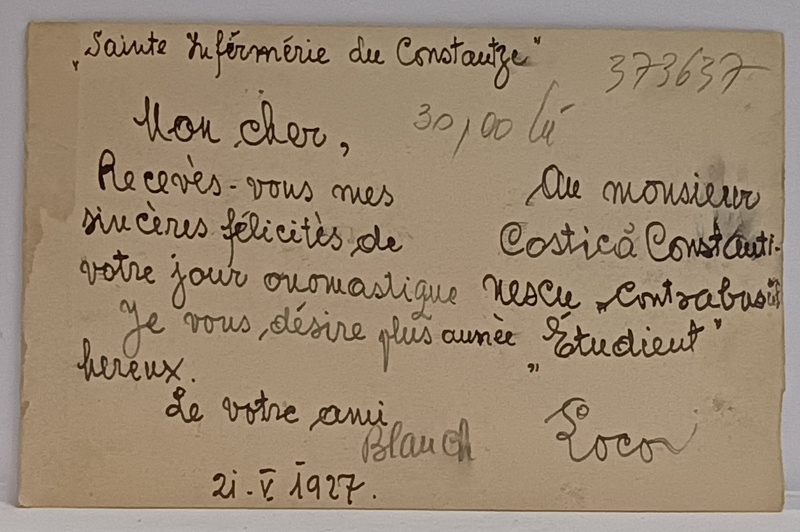 „Sainte Inférmérie du Constantze"
373637
30,00 lei
Mon cher,
Recevès-vous mes
sincères félicitès de
votre jour onomastique
Je vous désire plus année
hereux.
Le votre ami
Blanch
21-V 1927.
Au monsieur
Costică Constanti-
nescu „Contrabasist
„Étudient"
Loco